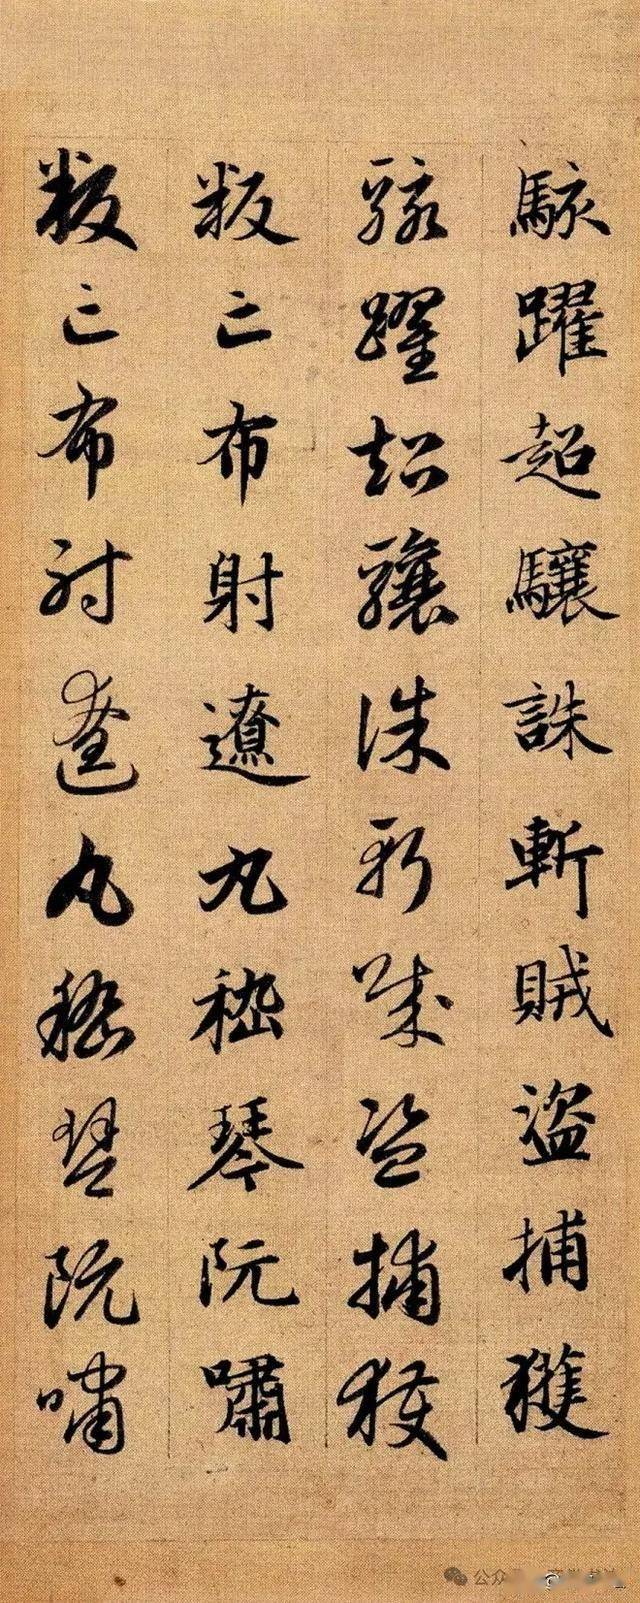 駭躍超驤誅斬賊盜捕獲
駭躍超驤誅斬賊盜捕獲
叛亡布射遼丸嵇琴阮嘯
叛亡布射遼丸嵇琴阮嘯
公众